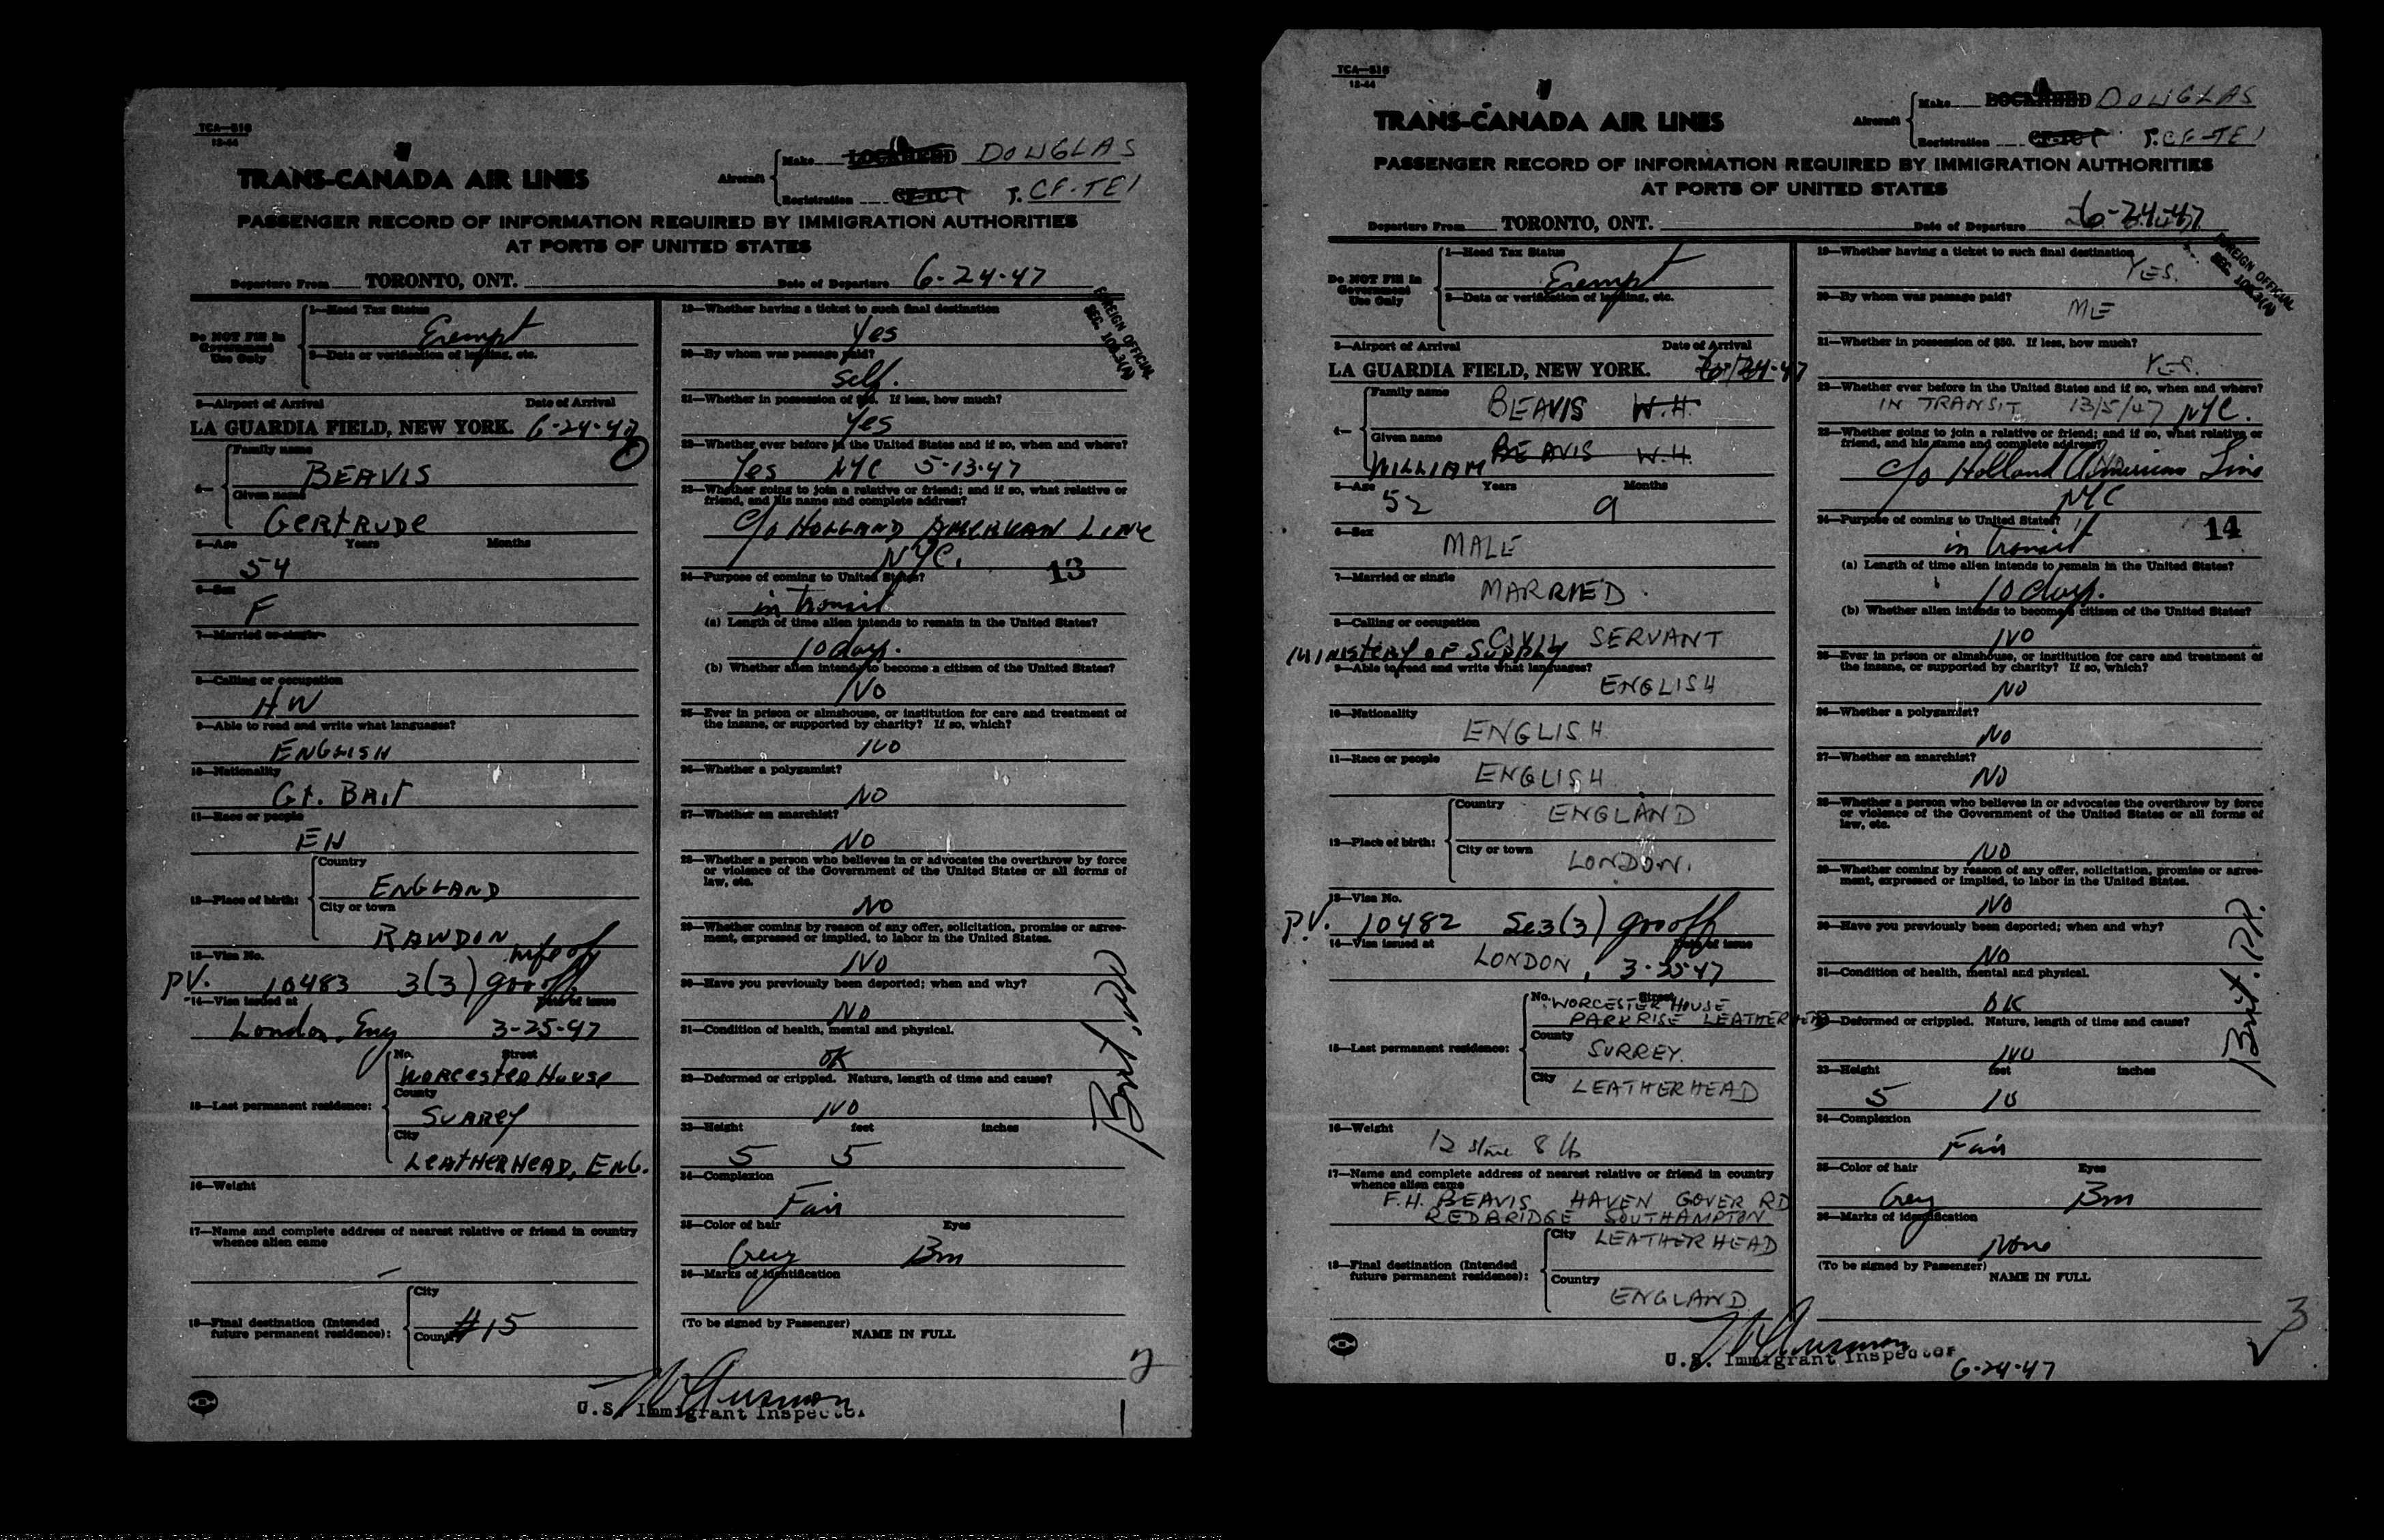 TCA—518
12-44
TRANS-CANADA AIR LINES
Aircraft
Make LOCKHEED DOUGLAS
Registration CF-TCT T. CF-TEI
PASSENGER RECORD OF INFORMATION REQUIRED BY IMMIGRATION AUTHORITIES
AT PORTS OF UNITED STATES
Departure From TORONTO, ONT. Date of Departure 6-24-47
Do NOT Fill In Government Use Only
1—Head Tax Status
Exempt
2—Data or verification of landing, etc.
3—Airport of Arrival Date of Arrival
LA GUARDIA FIELD, NEW YORK. 6-24-47
4—
Family name
BEAVIS
Given name
GERTRUDE
5—Age Years Months
54
6—Sex
F
7—Married or single
8—Calling or occupation
HW
9—Able to read and write what languages?
ENGLISH
10—Nationality
Gt. BAIT
11—Race or people
EN
12—Place of birth:
Country
ENGLAND
City or town
RAWDON
13—Visa No. wife of
PV. 10483 3(3) gov off
14—Visa issued at Date of issue
London, Eng 3-25-47
15—Last permanent residence:
No. Street
WORCESTER HOUSE
County
SURREY
City
LEATHERHEAD, ENG.
16—Weight
17—Name and complete address of nearest relative or friend in country
whence alien came
—
18—Final destination (Intended
future permanent residence):
City
Country
#15
19—Whether having a ticket to such final destination
Yes
FOREIGN OFFICIAL
20—By whom was passage paid?
Self.
21—Whether in possession of $50. If less, how much?
Yes
22—Whether ever before in the United States and if so, when and where?
Yes NYC 5-13-47
23—Whether going to join a relative or friend; and if so, what relative or
friend, and his name and complete address?
c/o HOLLAND AMERICAN LINE
NYC.
13
24—Purpose of coming to United States?
in transit
(a) Length of time alien intends to remain in the United States?
10 days.
(b) Whether alien intends to become a citizen of the United States?
NO
25—Ever in prison or almshouse, or institution for care and treatment of
the insane, or supported by charity? If so, which?
NO
26—Whether a polygamist?
NO
27—Whether an anarchist?
NO
28—Whether a person who believes in or advocates the overthrow by force
or violence of the Government of the United States or all forms of
law, etc.
NO
29—Whether coming by reason of any offer, solicitation, promise or agree-
ment, expressed or implied, to labor in the United States.
NO
30—Have you previously been deported; when and why?
NO
31—Condition of health, mental and physical.
OK
32—Deformed or crippled. Nature, length of time and cause?
NO
33—Height feet inches
5 5
34—Complexion
Fair
35—Color of hair Eyes
Grey Brn
36—Marks of identification
(To be signed by Passenger)
NAME IN FULL
Brit.
2
U.S. Immigrant Inspector
TCA—518
12-44
TRANS-CANADA AIR LINES
Aircraft
Make LOCKHEED DOUGLAS
Registration CF-TCT T. CF-TEI
PASSENGER RECORD OF INFORMATION REQUIRED BY IMMIGRATION AUTHORITIES
AT PORTS OF UNITED STATES
Departure From TORONTO, ONT. Date of Departure 6-24-47
Do NOT Fill In Government Use Only
1—Head Tax Status
Exempt
2—Data or verification of landing, etc.
3—Airport of Arrival Date of Arrival
LA GUARDIA FIELD, NEW YORK. 6-24-47
4—
Family name
BEAVIS W.H.
Given name
WILLIAM BEAVIS W.H.
5—Age Years Months
52 9
6—Sex
MALE
7—Married or single
MARRIED.
8—Calling or occupation
MINISTERY OF SUPPLY CIVIL SERVANT
9—Able to read and write what languages?
ENGLISH
10—Nationality
ENGLISH
11—Race or people
ENGLISH
12—Place of birth:
Country
ENGLAND
City or town
LONDON.
13—Visa No.
P.V. 10482 Se3(3) gov off
14—Visa issued at Date of issue
LONDON, 3-25-47
15—Last permanent residence:
No. Street
WORCESTER HOUSE
PARK RISE LEATHERHEAD
County
SURREY.
City
LEATHERHEAD
16—Weight
12 stone 8 lb
17—Name and complete address of nearest relative or friend in country
whence alien came
F.H. BEAVIS HAVEN GOVER RD
REDBRIDGE SOUTHAMPTON
18—Final destination (Intended
future permanent residence):
City
LEATHERHEAD
Country
ENGLAND
19—Whether having a ticket to such final destination
YES.
FOREIGN OFFICIAL
20—By whom was passage paid?
ME
21—Whether in possession of $50. If less, how much?
YES.
22—Whether ever before in the United States and if so, when and where?
IN TRANSIT 13/5/47 NYC.
23—Whether going to join a relative or friend; and if so, what relative or
friend, and his name and complete address?
c/o Holland American Line
NYC
14
24—Purpose of coming to United States?
in transit
(a) Length of time alien intends to remain in the United States?
10 days.
(b) Whether alien intends to become a citizen of the United States?
NO
25—Ever in prison or almshouse, or institution for care and treatment of
the insane, or supported by charity? If so, which?
NO
26—Whether a polygamist?
NO
27—Whether an anarchist?
NO
28—Whether a person who believes in or advocates the overthrow by force
or violence of the Government of the United States or all forms of
law, etc.
NO
29—Whether coming by reason of any offer, solicitation, promise or agree-
ment, expressed or implied, to labor in the United States.
NO
30—Have you previously been deported; when and why?
NO
31—Condition of health, mental and physical.
OK
32—Deformed or crippled. Nature, length of time and cause?
NO
33—Height feet inches
5 10
34—Complexion
Fair
35—Color of hair Eyes
Grey Brn
36—Marks of identification
None
(To be signed by Passenger)
NAME IN FULL
Brit. PP.
3
U.S. Immigrant Inspector
6-24-47